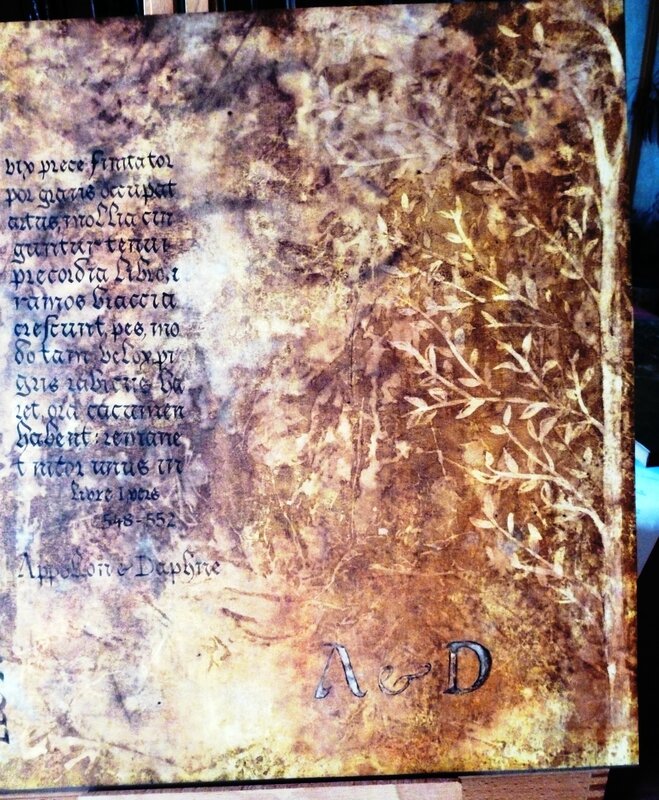 vix prece finitator
por gravis occupat
artus, mollia cin
guntur tenui
precordia libro, i
ramos braccia
crescunt, pes, mo
do tam velox pi
gris ha
ret, ora cacumen
habent: remane
t nitor unus in
Livre I vers
548-552
Appollon & Daphne
A & D